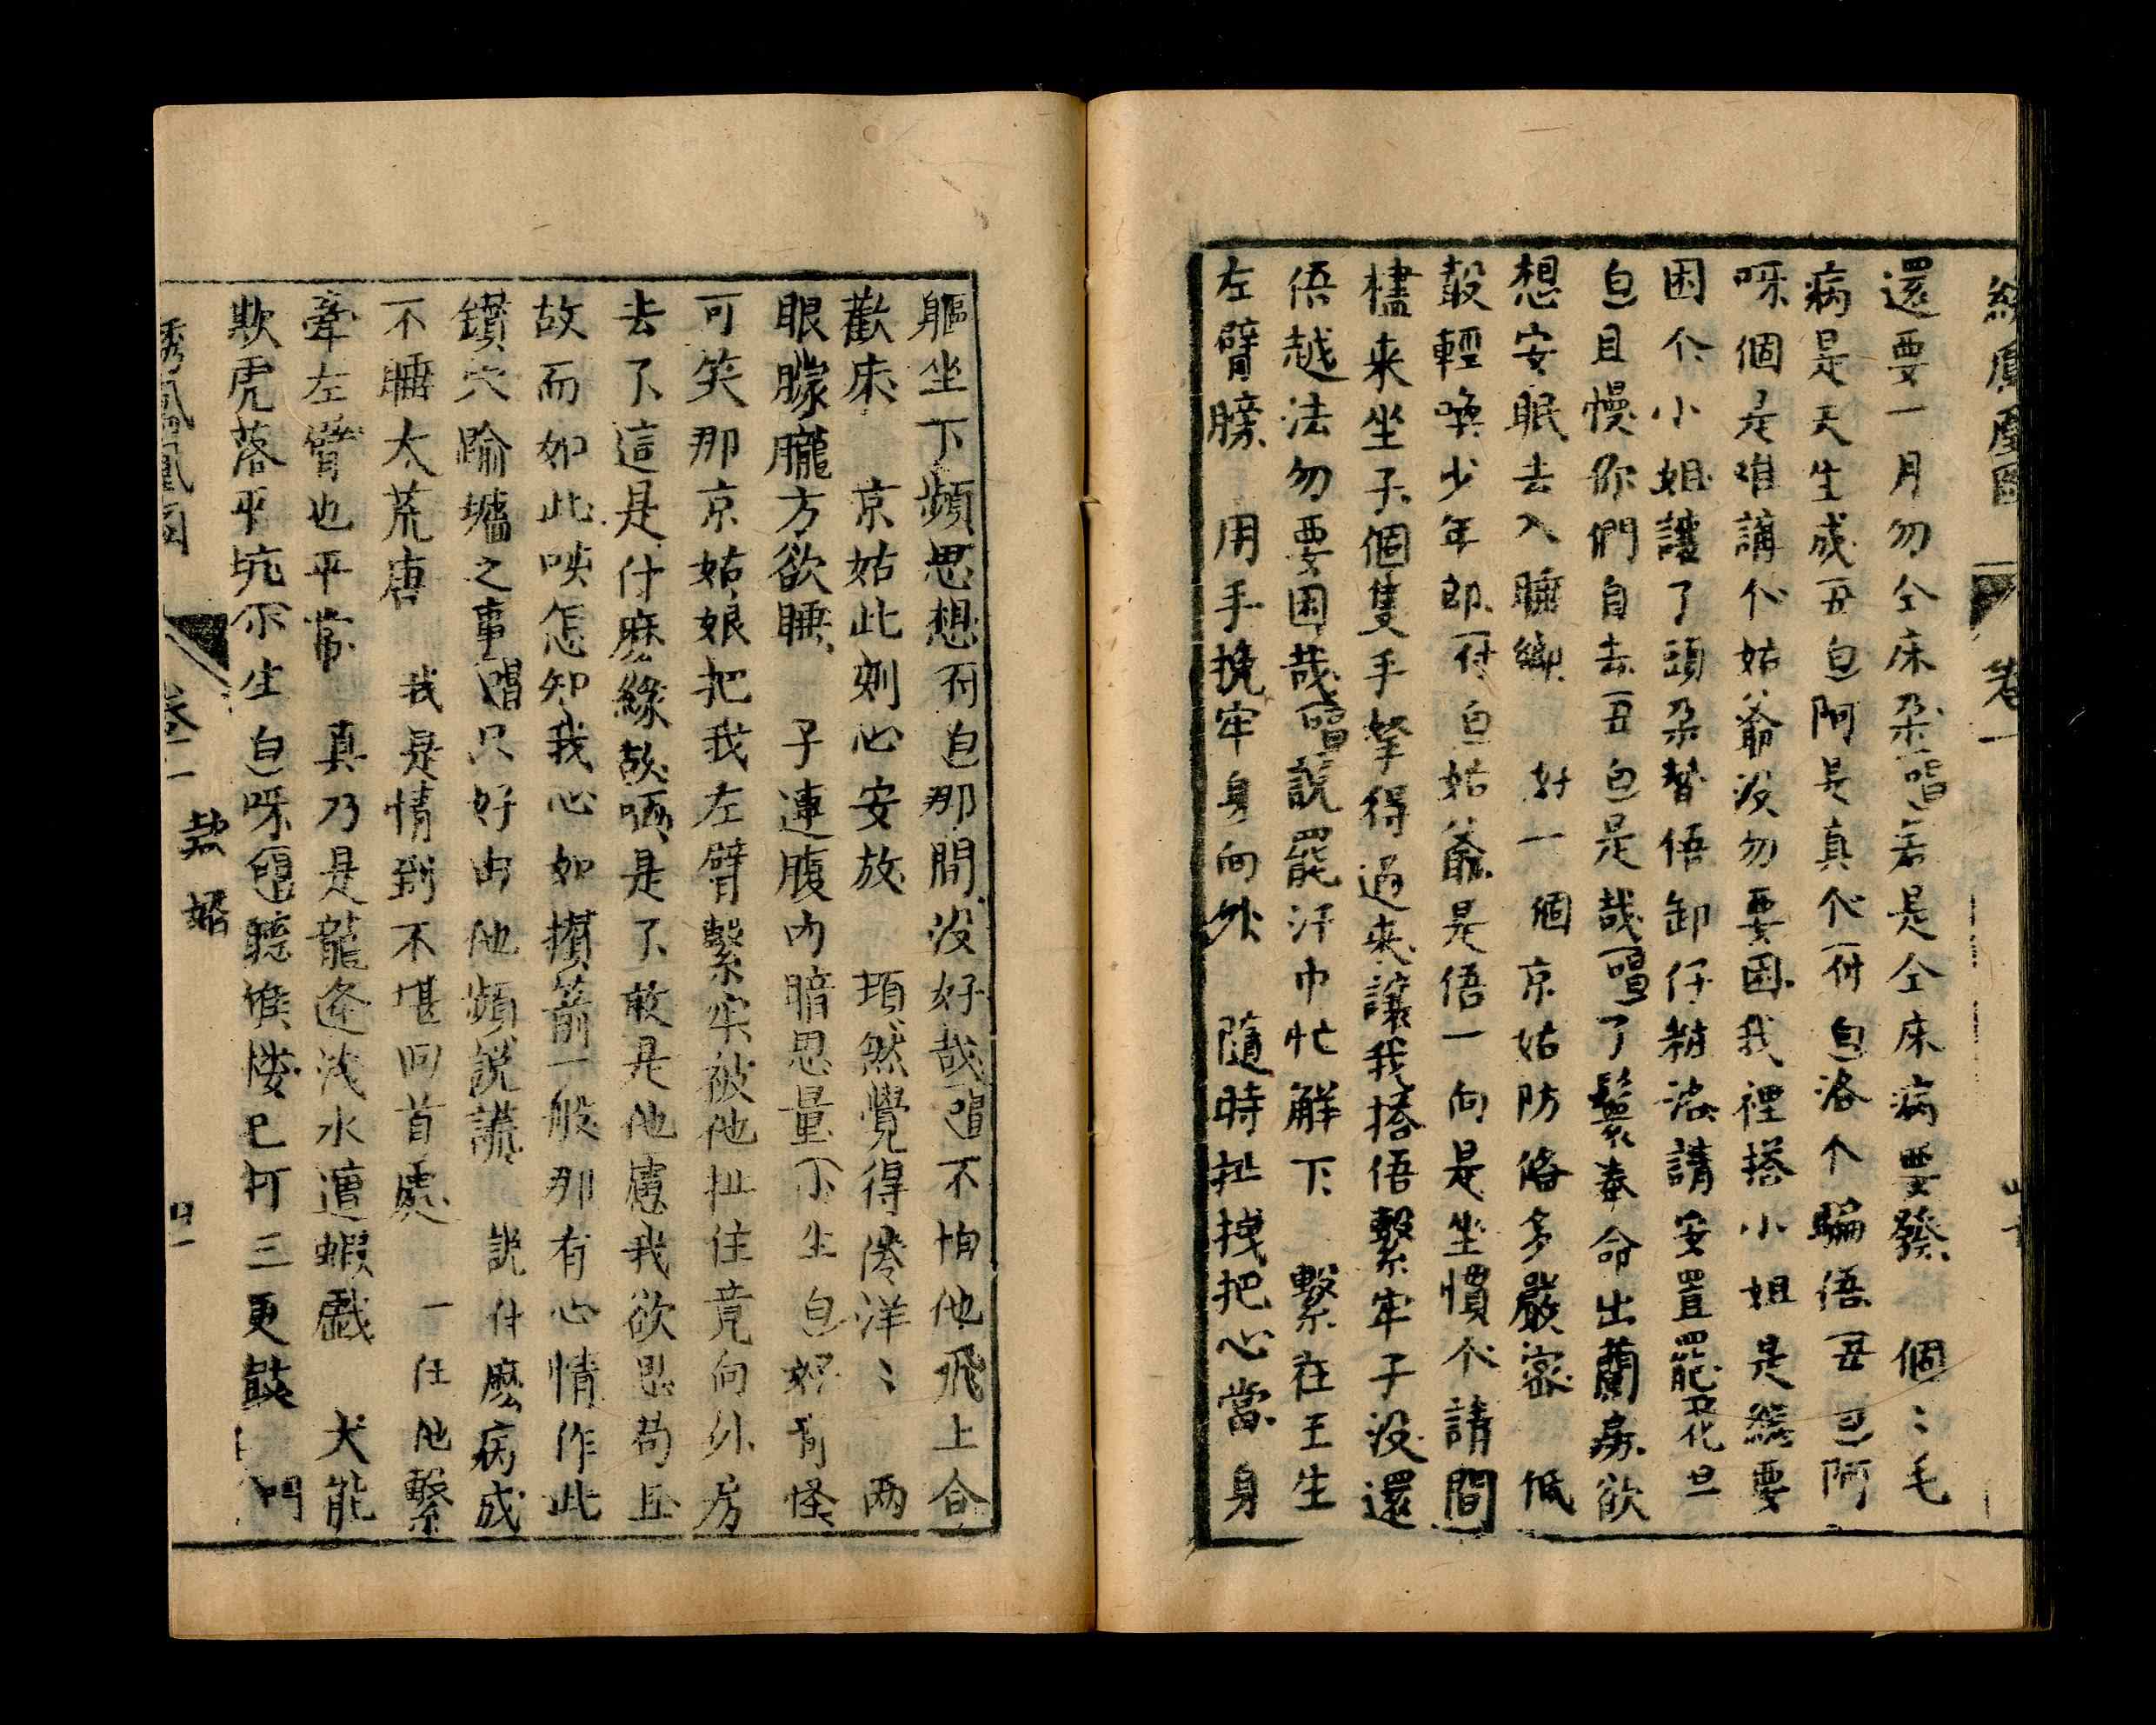 還要一月勿仝床朶唱若是仝床病要發　個〻毛
病是天生成丑白阿是真个付白洛个騙俉丑白阿
呀個是咱講个姑爺沒勿要困我裡搭小姐是總要
困个小姐讓了頭朶替俉卸仔粧洛請安置罷花旦
白且慢你們自去丑白是哉唱了鬟奉命出蘭房欲
想安眠去入睡鄉　好一個京姑防俻多嚴密　低
聲輕喚少年郎付白姑爺是俉一向是坐慣个請間
櫺来坐子個隻手拏得過來讓我搭俉繫牢子沒還
俉越法勿要困哉唱說罷汗巾忙解下　繫在王生
左臂膀　用手挽牢身向外　隨時扯拽把心當　身
卷一
軀坐下頻思想付白那間沒好哉唱不怕他飛上合
歡床　京姑此刻心安放　頊然覺得倦洋〻　两
眼朦朧方欲睡　子連腹内暗思量小生白好奇怪
可笑那京姑娘把我左臂繫牢被他扯住竟向外房
去了這是什麽緣故哂是了敢是他慮我欲思苟且
故而如此唉怎知我心如攢箭一般那有心情作此
鑚穴踰墻之事唱只好由他頻說謊　説什麽病成
不睡太荒唐　我是情到不堪回首處　一任他繫
牽左臂也平常　真乃是龍逢浅水遭蝦戲　犬能
欺虎落平坑小生白呀唱聽樵楼已打三更鼓　門
繡鳳凰圖　卷一　熱婚